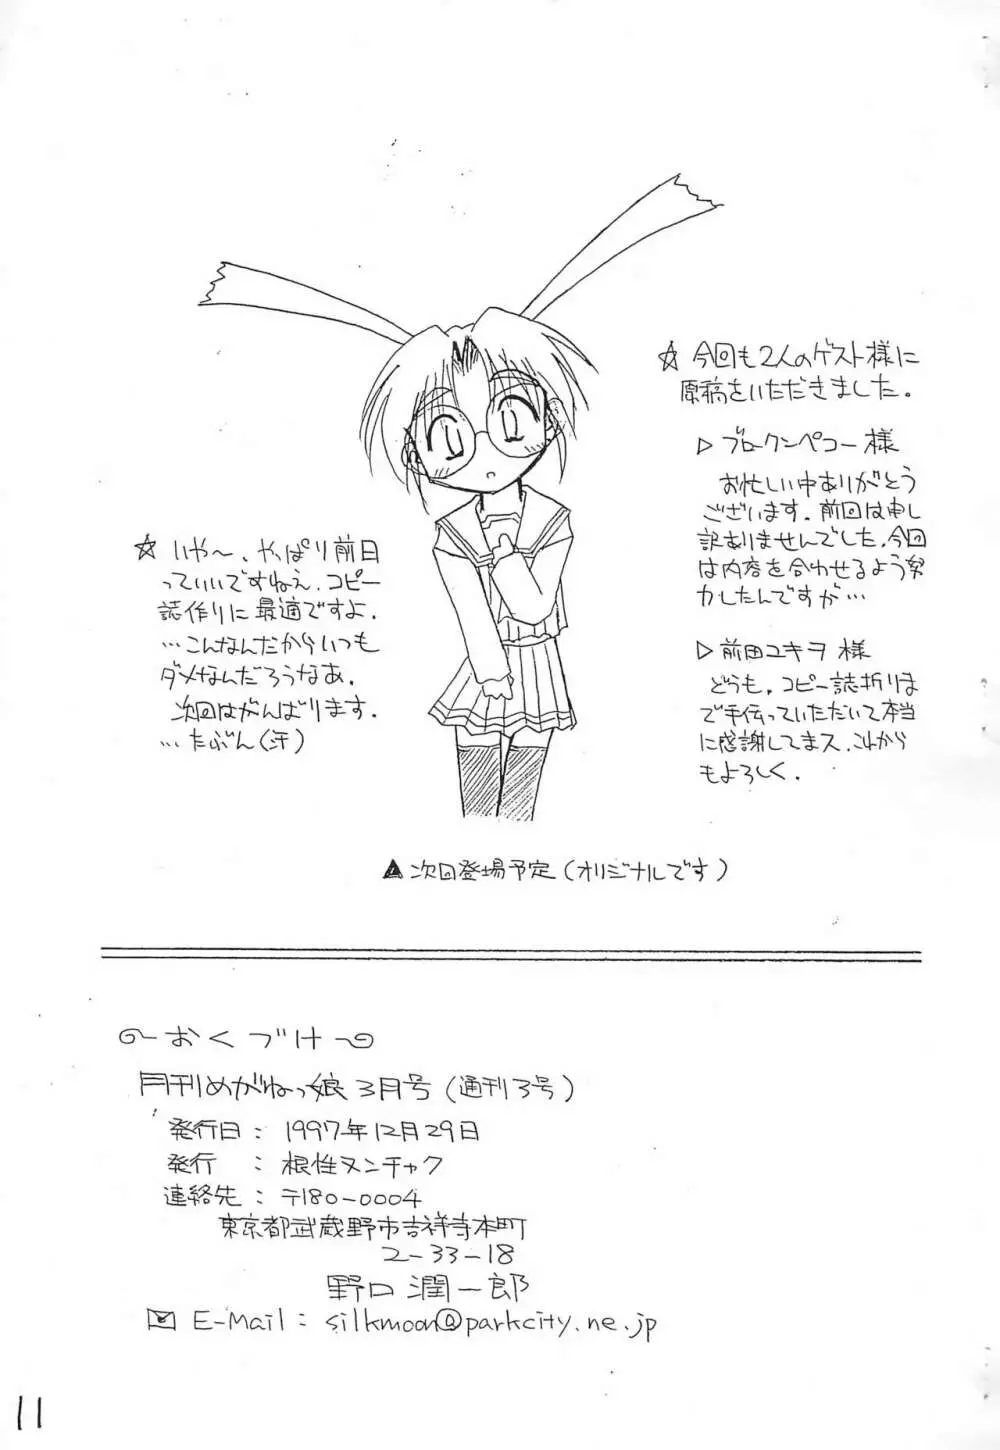 ☆ 今回も2人のゲスト様に
原稿をいただきました。
▷ ブロークンペコー様
お忙しい中ありがとう
ございます。前回は申し
訳ありませんでした。今回
は内容を合わせるよう努
力したんですが…
▷ 前田ユキヲ様
どうも。コピー誌折りま
で手伝っていただいて本当
に感謝してまス。これから
もよろしく。
☆ いや〜、やっぱり前日
っていいですねえ。コピー
誌作りに最適ですよ。
…こんなんだからいつも
ダメなんだろうなあ。
次回はがんばります。
…たぶん(汗)
▲次回登場予定(オリジナルです)
おくづけ
月刊めがねっ娘3月号(通刊3号)
発行日：1997年12月29日
発行　：根性ヌンチャク
連絡先：〒180-0004
東京都武蔵野市吉祥寺本町
2-33-18
野口潤一郎
E-Mail：silkmoon@parkcity.ne.jp
11